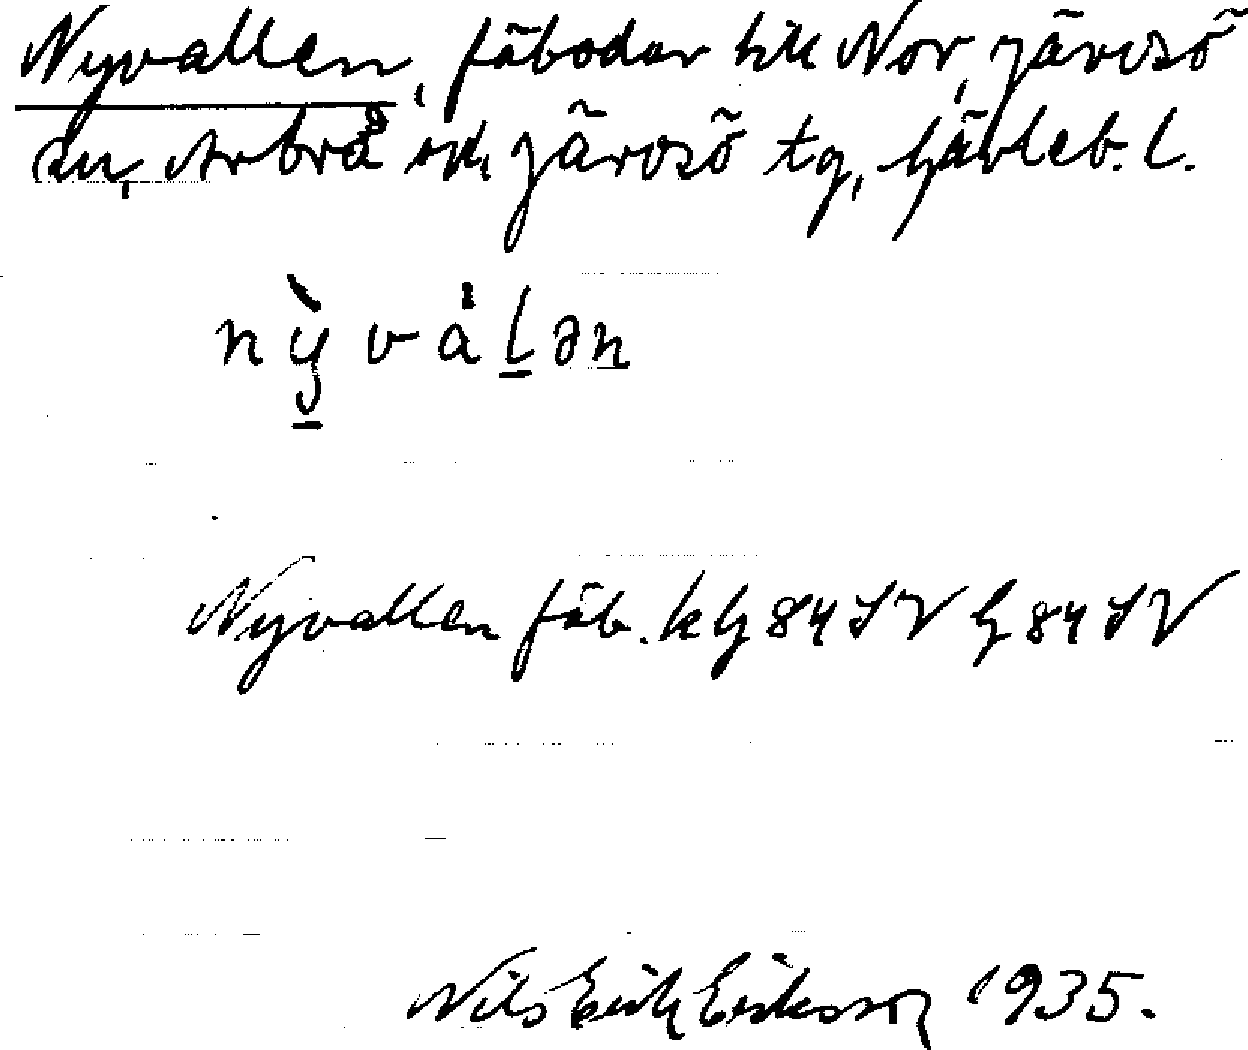 Nyvallen, fäbodar till Nor, Järvsö
sn, Arbrå och Järvsö tg, Gävleb. l.
nỳvàḻən
Nyvallen fäb. k G 84 SV G 84 SV
Nils Erik Eriksson 1935.